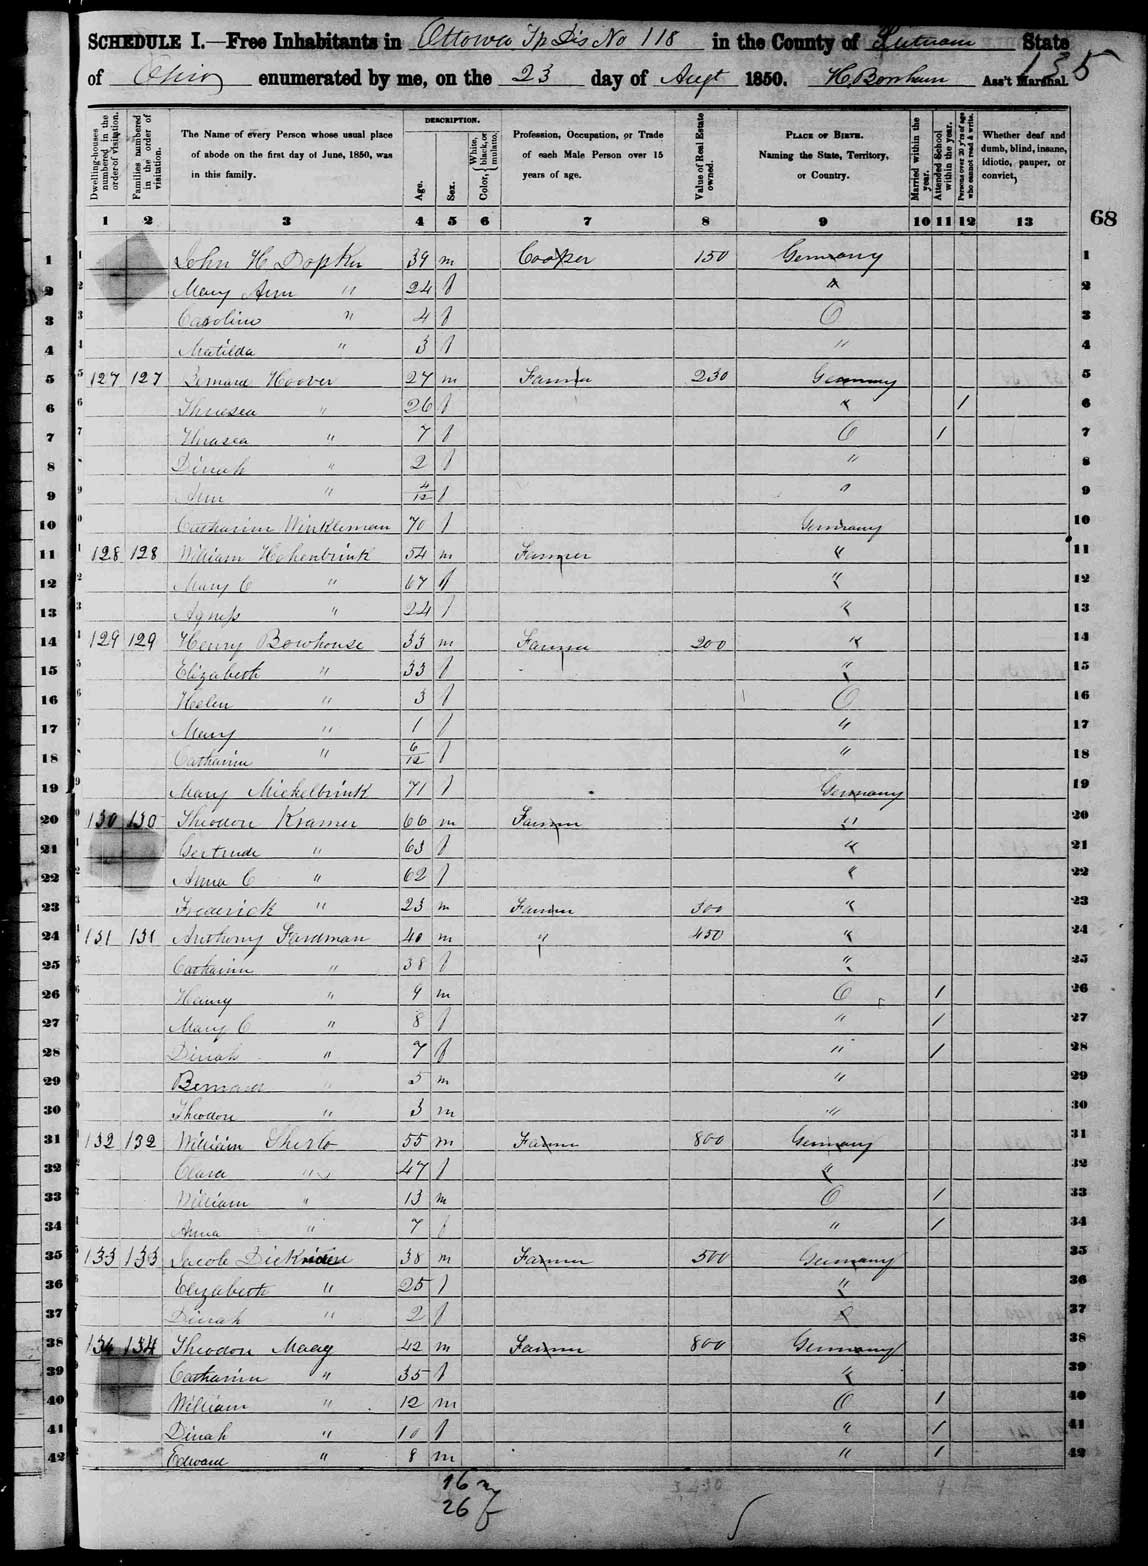 SCHEDULE I.—Free Inhabitants in Ottowa Tp Dis No 118 in the County of Putnam State
of Ohio enumerated by me, on the 23 day of Augt 1850. H. Bonham Ass't Marshal.
135
Dwelling-houses numbered in the order of visitation.
Families numbered in the order of visitation.
The Name of every Person whose usual place of abode on the first day of June, 1850, was in this family.
DESCRIPTION.
Age.
Sex.
Color, White, black, or mulatto.
Profession, Occupation, or Trade of each Male Person over 15 years of age.
Value of Real Estate owned.
PLACE OF BIRTH. Naming the State, Territory, or Country.
Married within the year.
Attended School within the year.
Persons over 20 y'rs of age who cannot read & write.
Whether deaf and dumb, blind, insane, idiotic, pauper, or convict,
1 2 3 4 5 6 7 8 9 10 11 12 13
68
1 John H Dopker 39 m Cooper 150 Germany 1
2 Mary Ann " 24 f " 2
3 Caroline " 4 f O 3
4 Matilda " 3 f " 4
5 127 127 Bernard Hoover 27 m Farmer 230 Germany 5
6 Thresea " 26 f " 1 6
7 Thrasea " 7 f O 1 7
8 Dinah " 2 f " 8
9 Ann " 4/12 f " 9
10 Catharine Winkleman 70 f Germany 10
11 128 128 William Hohenbrink 54 m Farmer " 11
12 Mary C " 67 f " 12
13 Agness " 24 f " 13
14 129 129 Henry Bowhouse 33 m Farmer 200 " 14
15 Elizabeth " 33 f " 15
16 Helen " 3 f O 16
17 Mary " 1 f " 17
18 Catharine " 6/12 f " 18
19 Mary Mickelbrink 71 f Germany 19
20 130 130 Theodore Kramer 66 m Farmer " 20
21 Gertrude " 63 f " 21
22 Anna C " 62 f " 22
23 Frederick " 23 m Farmer 300 " 23
24 131 131 Anthony Fardman 40 m " 450 " 24
25 Catharine " 38 f " 25
26 Henry " 9 m O 1 26
27 Mary C " 8 f " 1 27
28 Dinah " 7 f " 1 28
29 Bernard " 5 m " 29
30 Theodore " 3 m " 30
31 132 132 William Sherlo 55 m Farmer 800 Germany 31
32 Clara " 47 f " 32
33 William " 13 m O 1 33
34 Anna " 7 f " 1 34
35 133 133 Jacob 38 m Farmer 500 Germany 35
36 Elizabeth " 25 f " 36
37 Dinah " 2 f 37
38 134 134 Theodore Maag 42 m Farmer 800 Germany 38
39 Catharine " 35 f " 39
40 William " 12 m O 1 40
41 Dinah " 10 f " 1 41
42 Edward " 8 m " 1 42
16 m
26 f
3,430
9